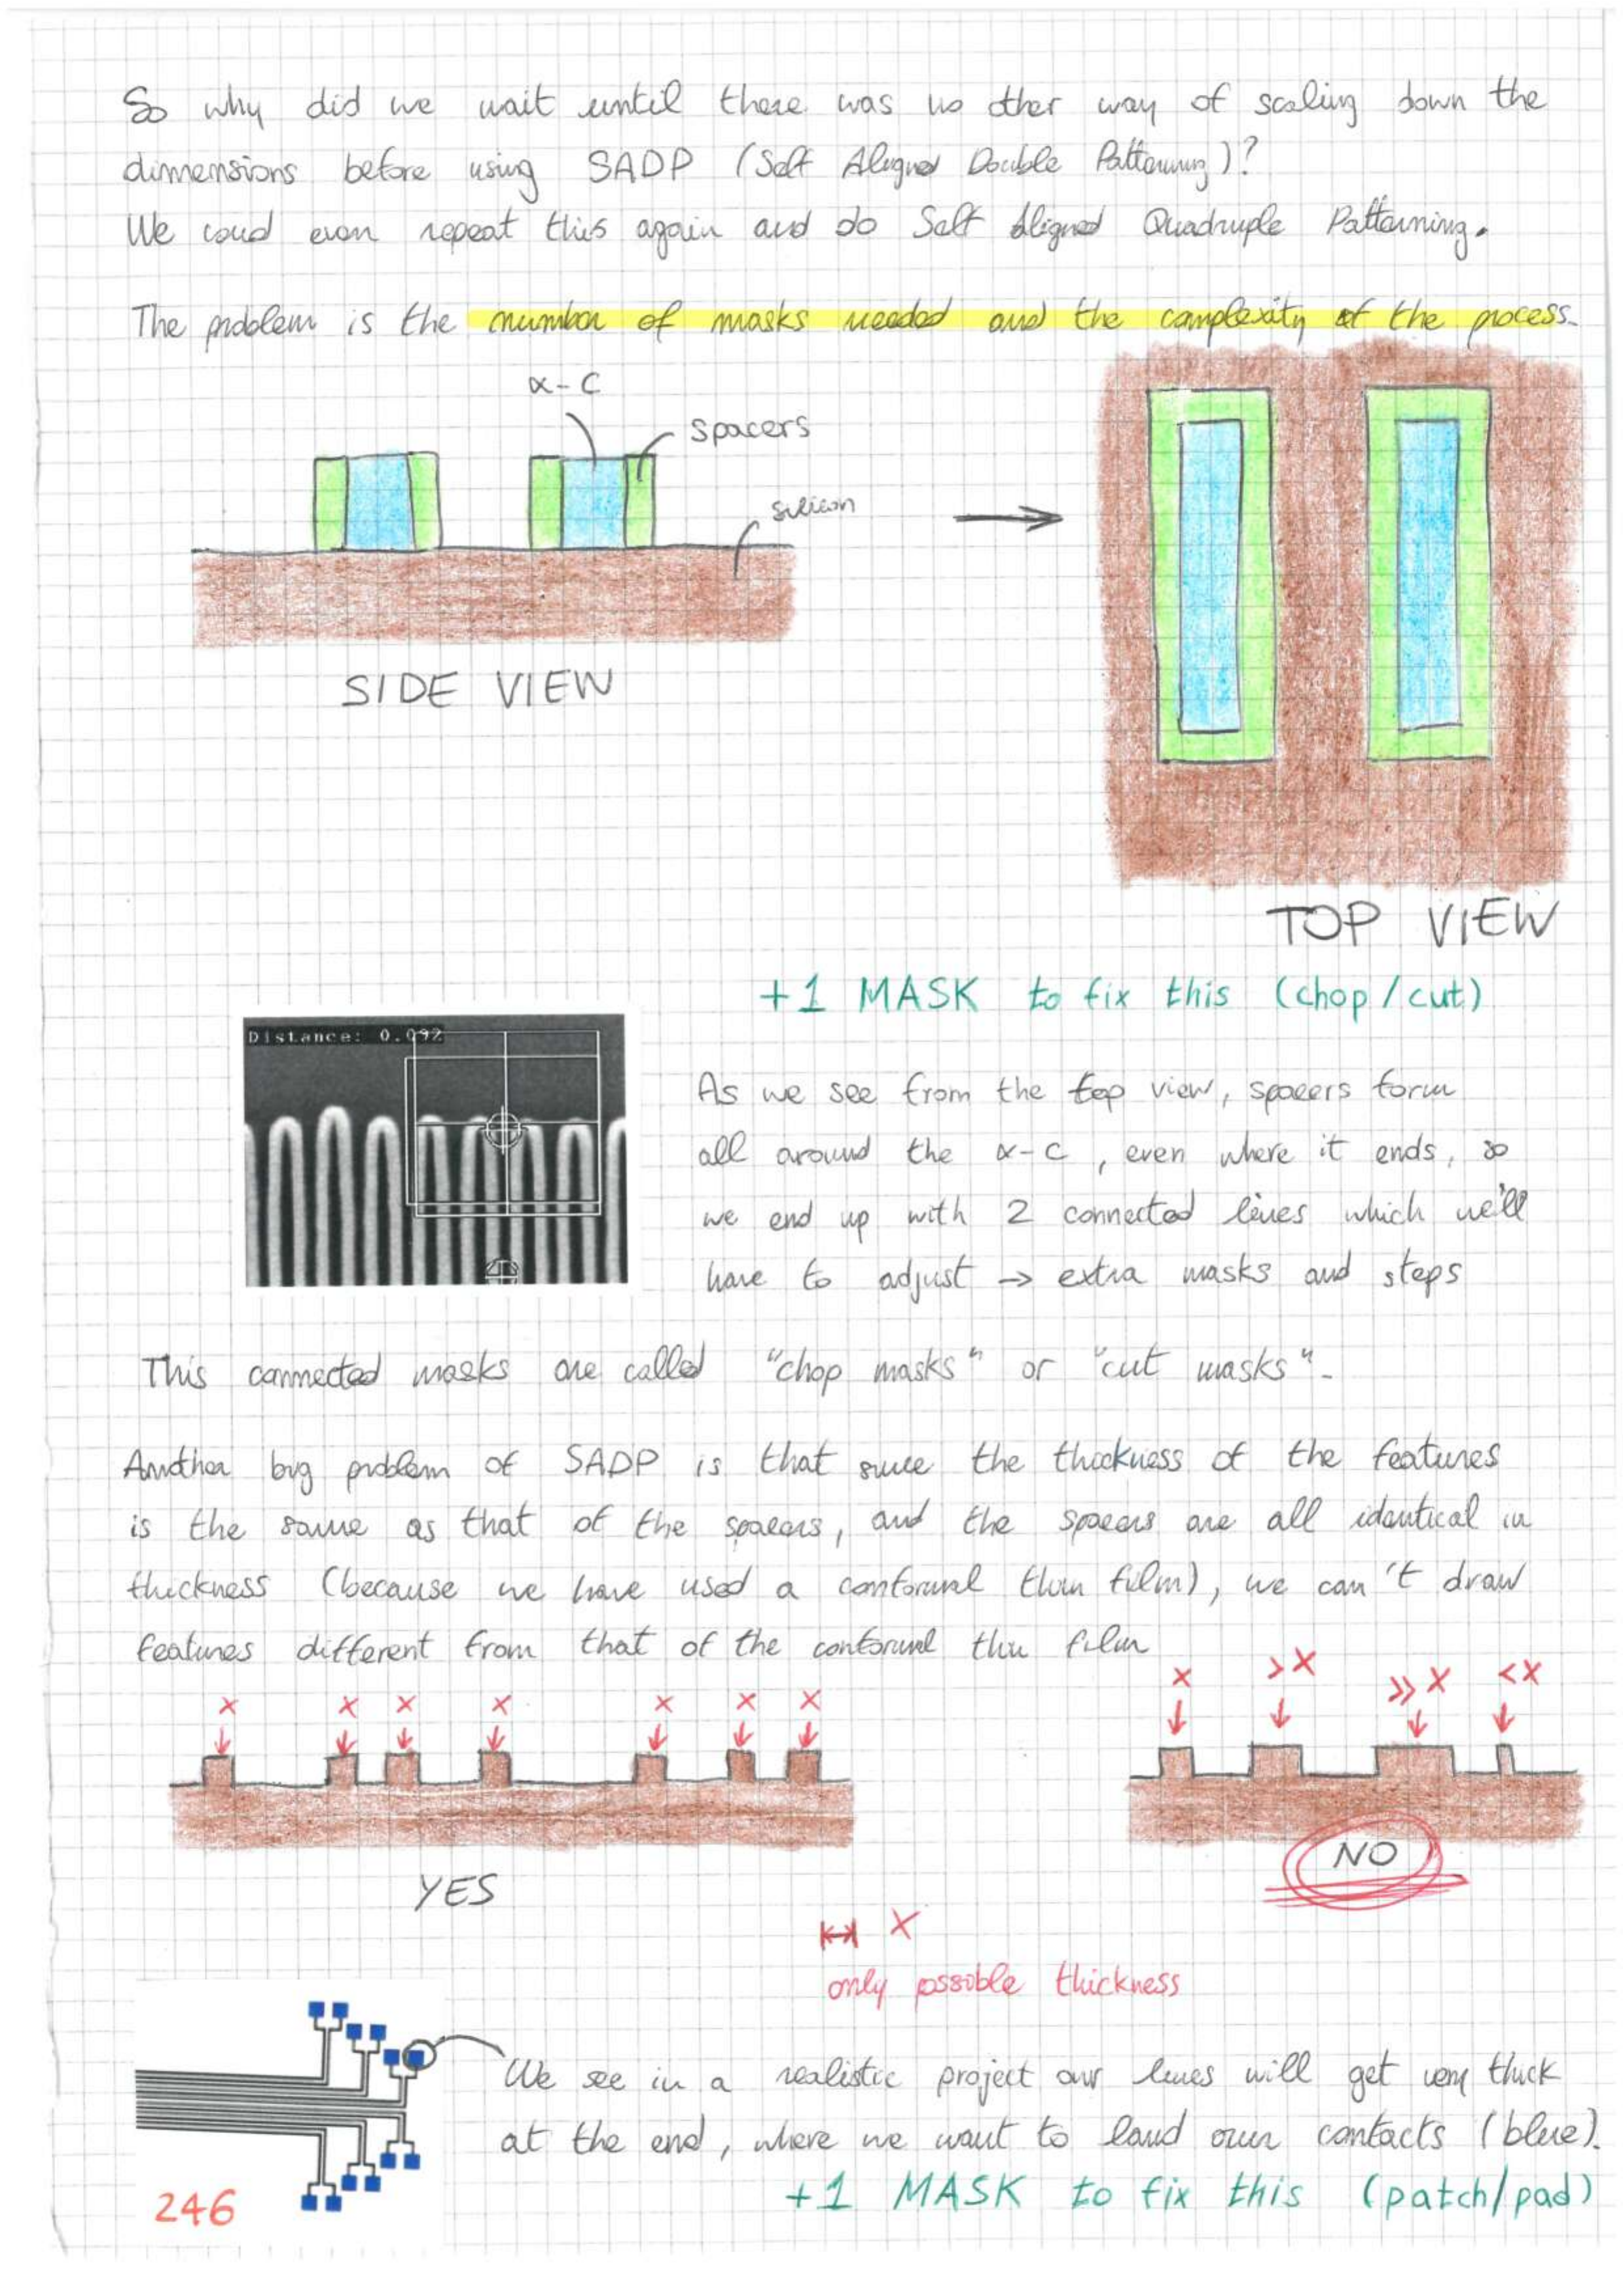 So why did we wait until there was no other way of scaling down the
dimensions before using SADP (Self Aligned Double Patterning)?
We coud even repeat this again and do Self Aligned Quadruple Patterning.
The problem is the number of masks needed and the complexity of the process.
α-C
spacers
silicon
SIDE VIEW
TOP VIEW
+1 MASK to fix this (chop/cut)
Distance: 0.092
As we see from the top view, spacers form
all around the α-C, even where it ends, so
we end up with 2 connected lines which we'll
have to adjust → extra masks and steps
This connected masks are called "chop masks" or "cut masks".
Another big problem of SADP is that since the thickness of the features
is the same as that of the spacers, and the spacers are all identical in
thickness (because we have used a conformal thin film), we can't draw
features different from that of the conformal thin film
x x x x x x x
x >x >>x <x
YES
NO
x
only possible thickness
We see in a realistic project our lines will get very thick
at the end, where we want to land our contacts (blue).
+1 MASK to fix this (patch/pad)
246